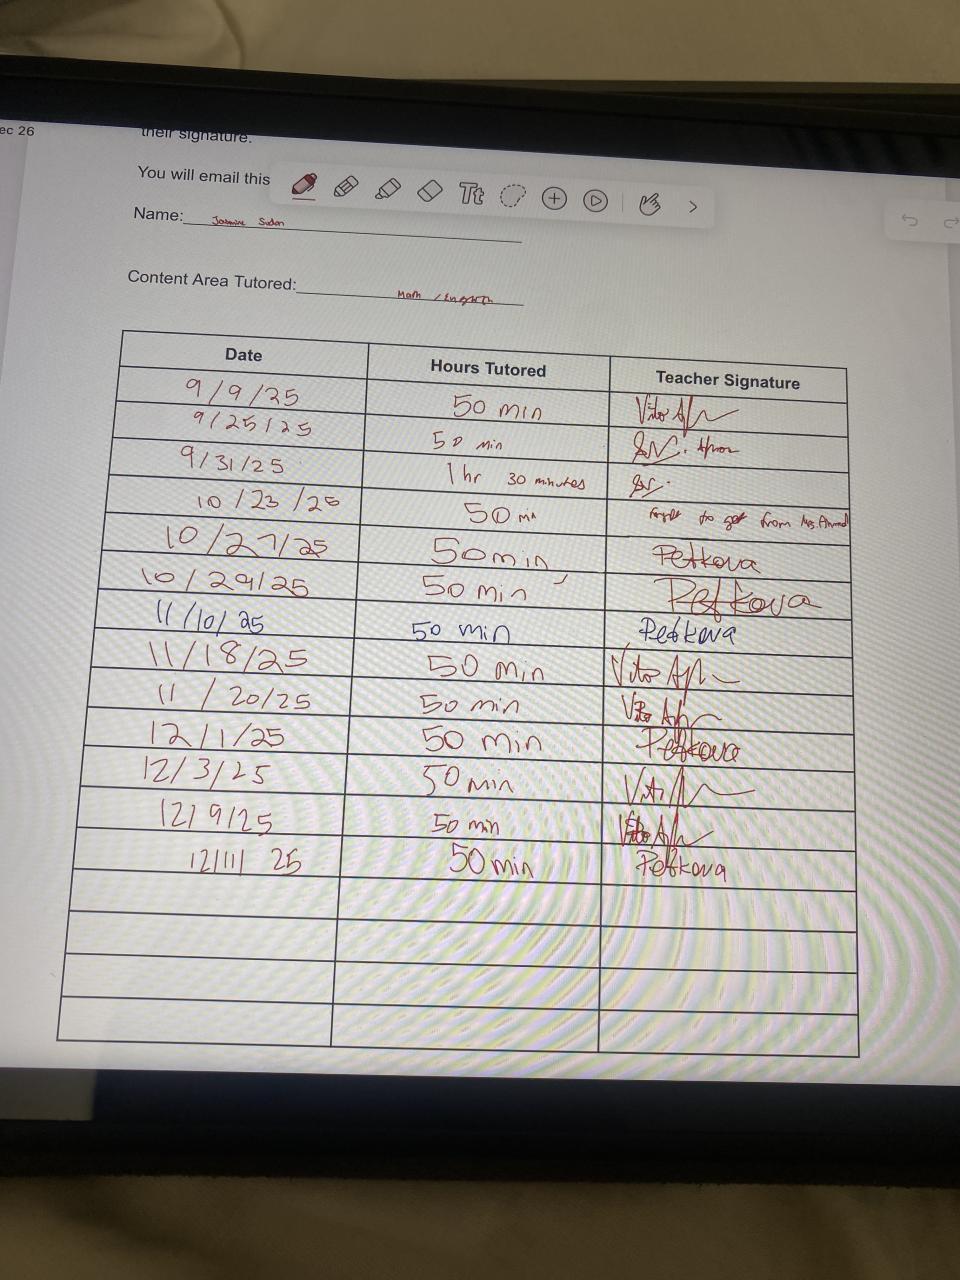 ec 26
their signature.
You will email this
Tt
Name: Jasmine Sudan
Content Area Tutored: Math / English
Date Hours Tutored Teacher Signature
9/9/25 50 min
9/25/25 50 min
9/31/25 1 hr 30 minutes
10/23/25 50 min forgot to get from Ms. Anand
10/27/25 50 min Petkova
10/29/25 50 min Petkova
11/10/25 50 min Petkova
11/18/25 50 min
11/20/25 50 min
12/1/25 50 min Petkova
12/3/25 50 min
12/9/25 50 min
12/11/25 50 min Petkova